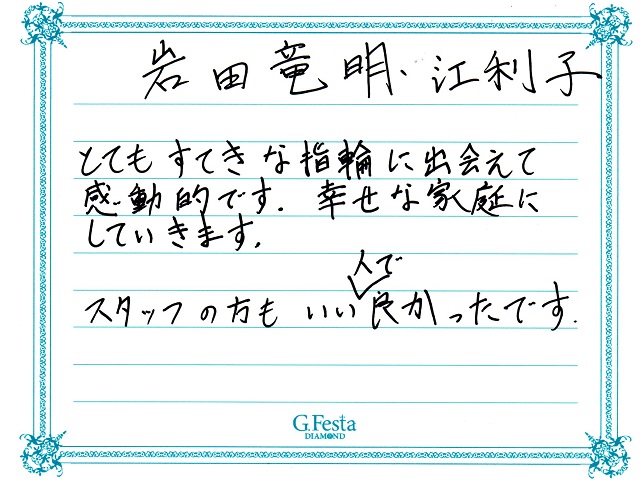 岩田竜明・江利子
とてもすてきな指輪に出会えて
感動的です。幸せな家庭に
していきます。
人で
スタッフの方もいい良かったです。
G.Festa
DIAMOND